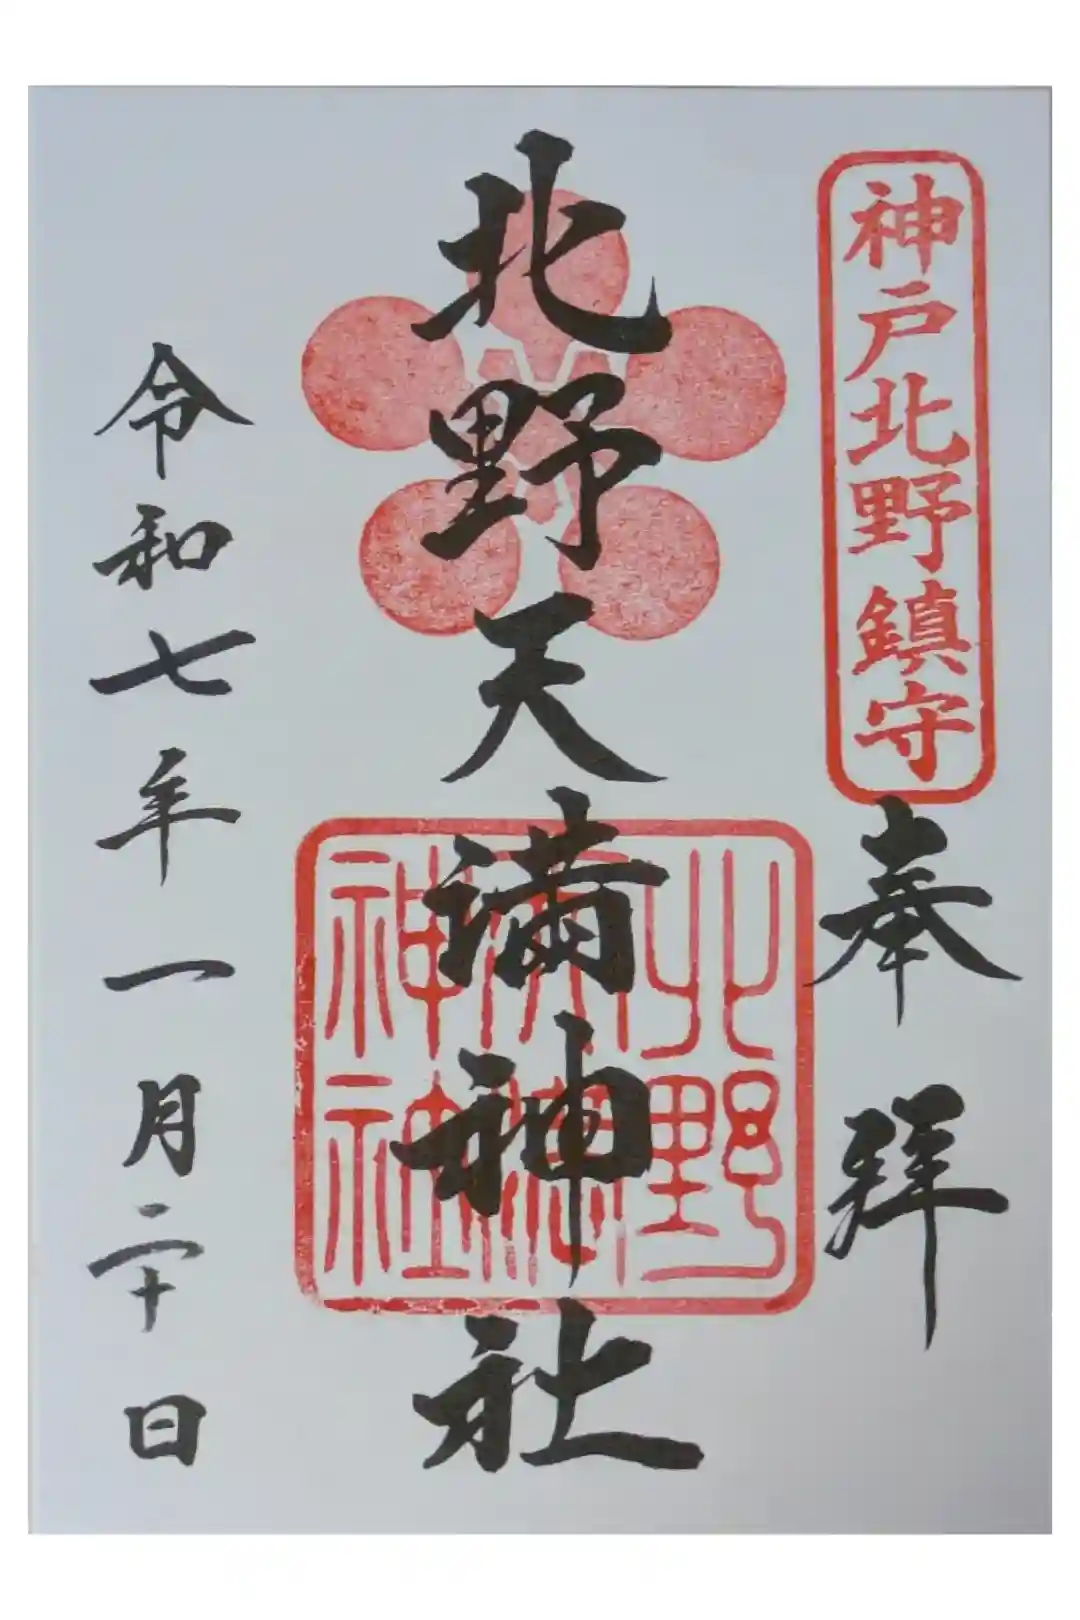 神戸北野鎮守
奉拝
北野天満神社
北野
天満
神社
令和七年一月二十日